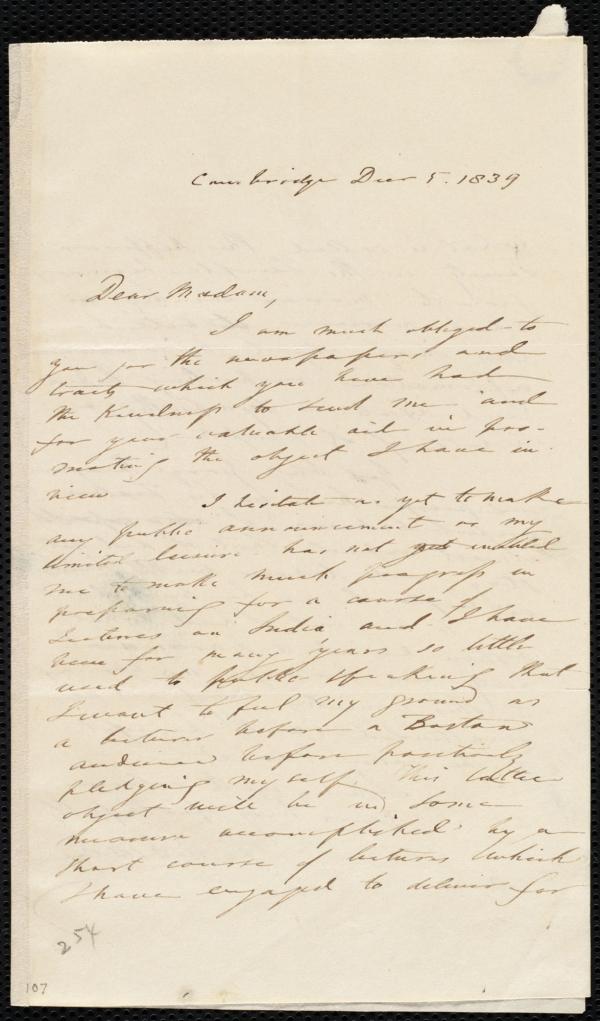 Cambridge Decr 5. 1839
Dear Madam,
I am much obliged to
you for the newspapers and
tracts which you have had
the kindness to send me and
for your valuable aid in pro-
moting the object I have in
view
I hesitate as yet to make
any public announcement as my
limited leisure has not yet enabled
me to make much progress in
preparing for a course of
Lectures on India and I have
been for many years so little
used to public speaking that
I want to feel my ground as
a lecturer before a Boston
audience before positively
pledging myself. This latter
object will be in some
measure accomplished by a
short course of lectures which
I have engaged to deliver for
254
107